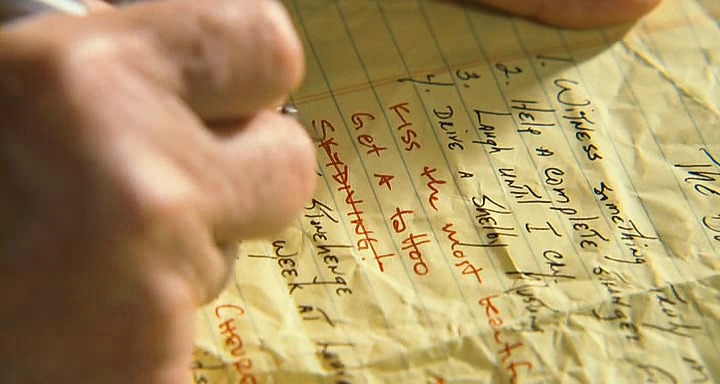 The
1. Witness something truly
2. Help a complete stranger
3. Laugh until I cry
4. Drive a Shelby Mustang
Kiss the most beautif
Get a tattoo
SKYDIVING!
Stonehenge
Week at